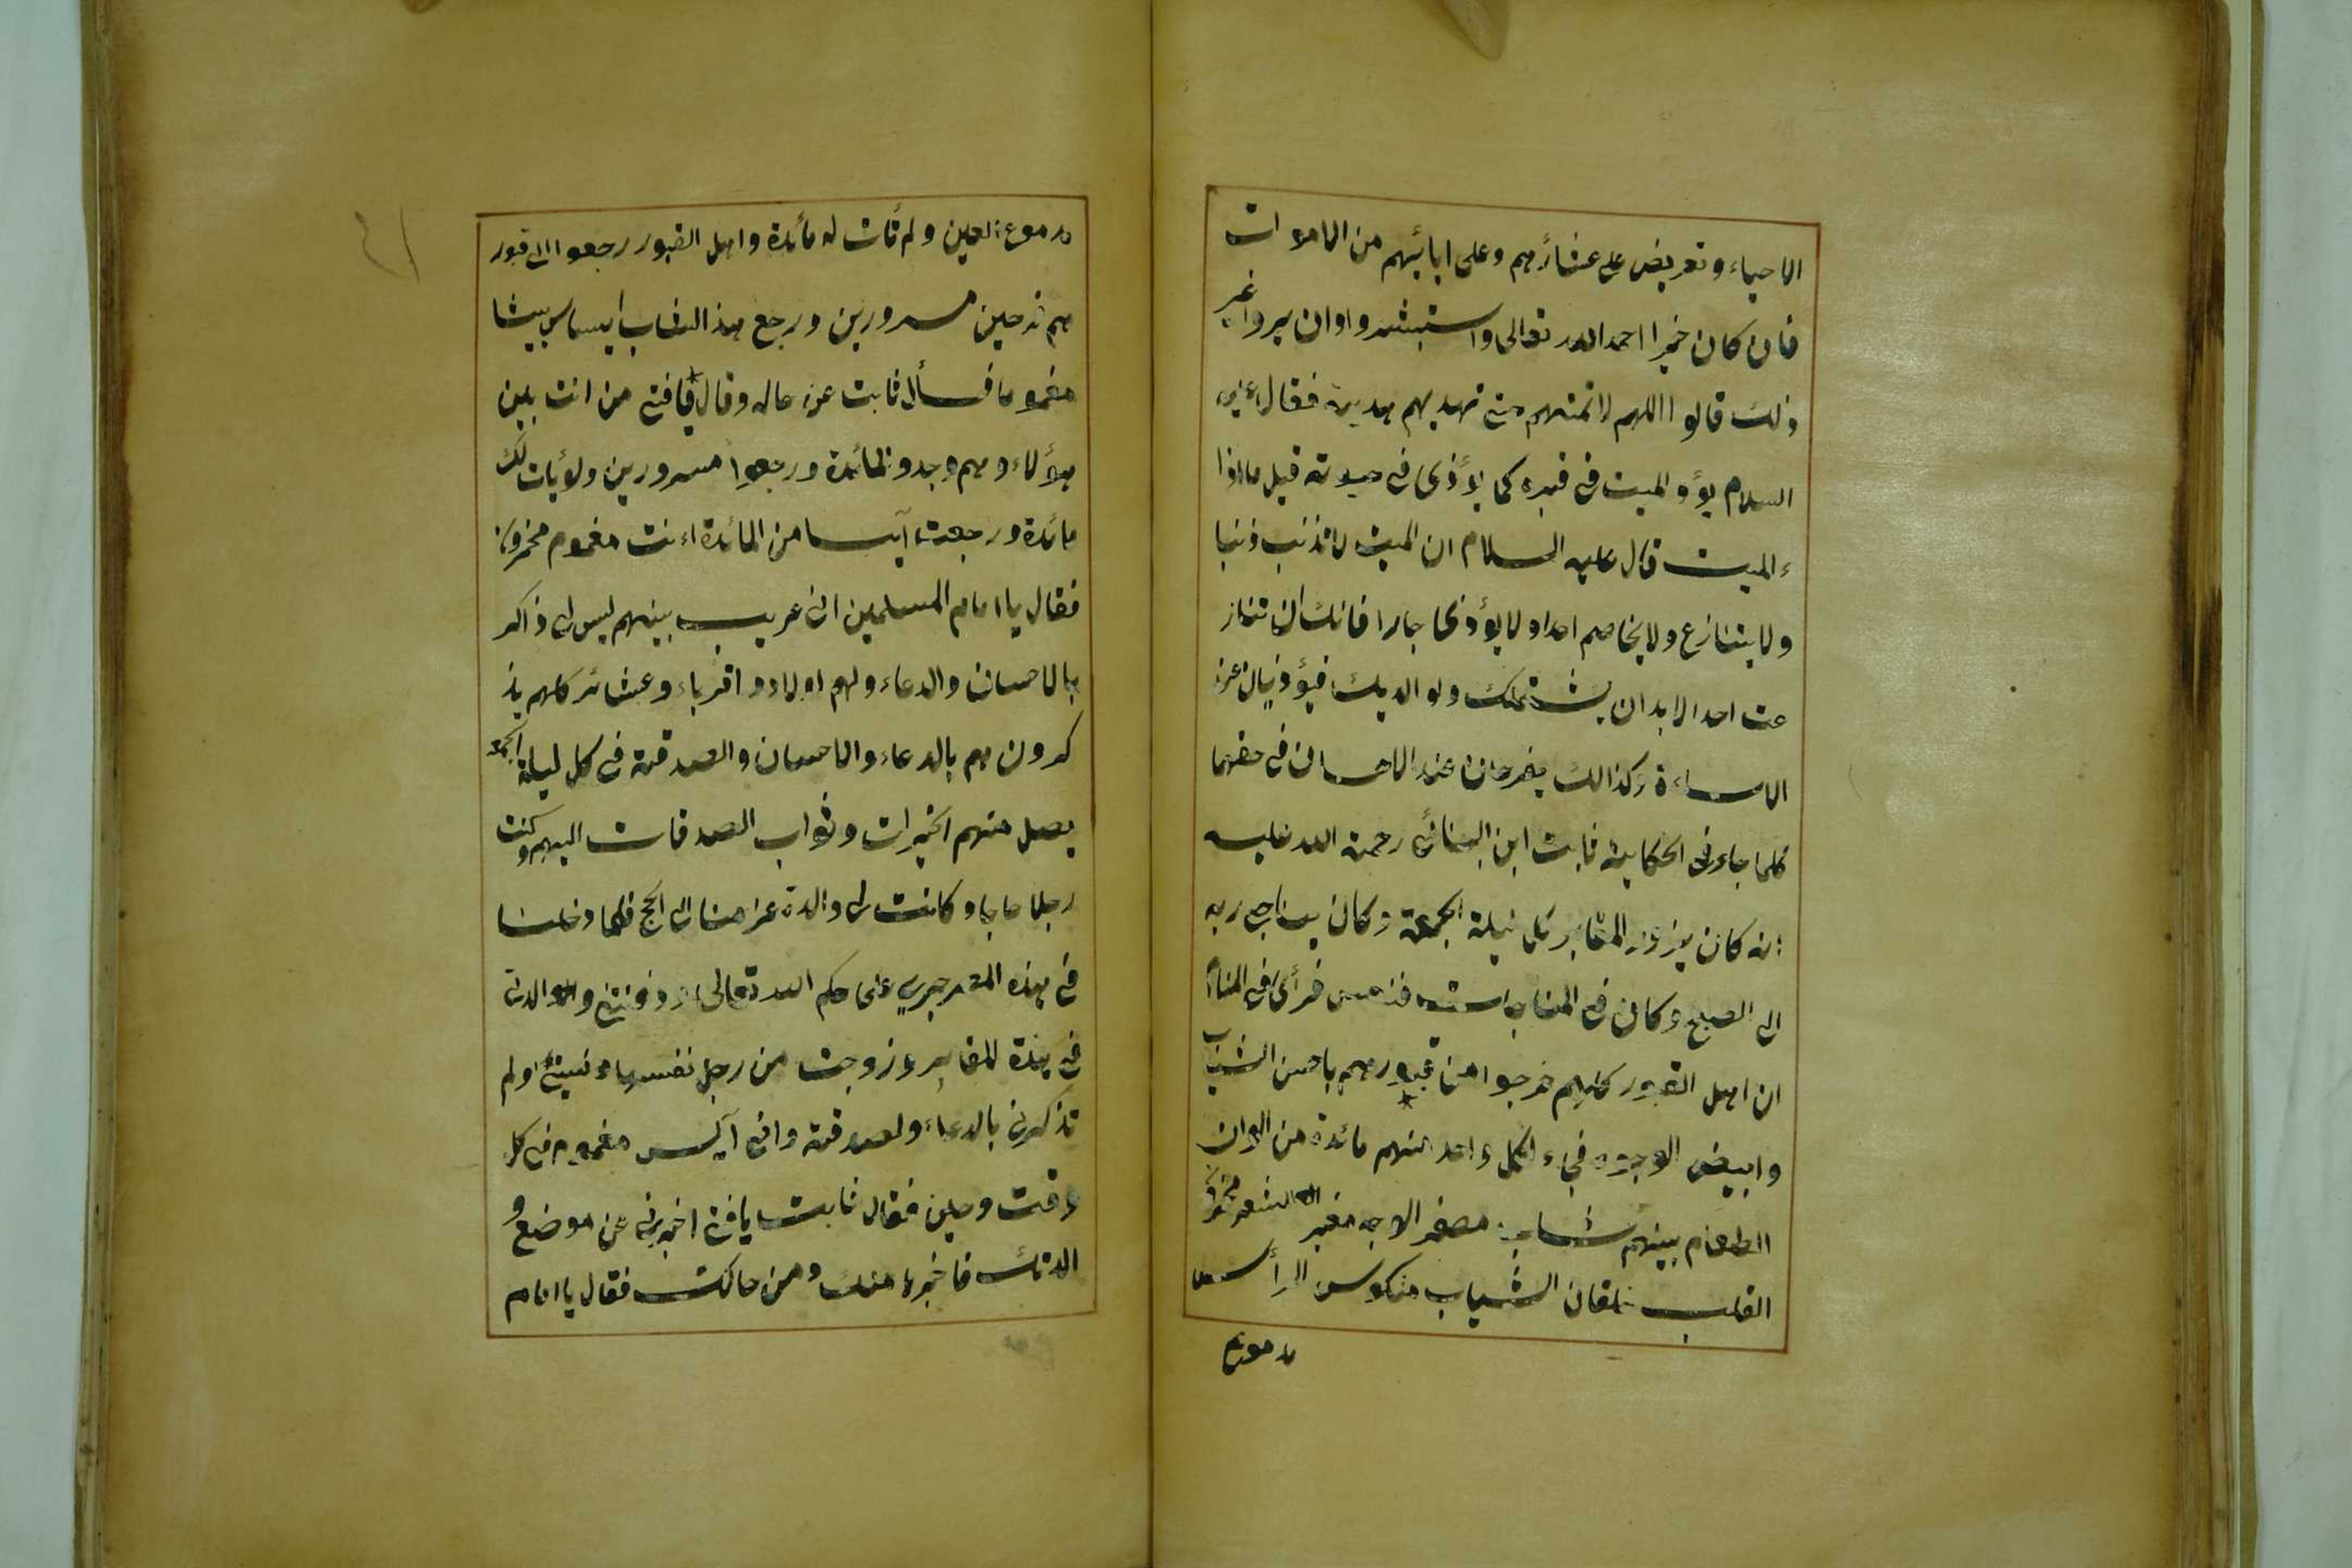 الاحياء وتعريض على عشائرهم وعلى ابائهم من الاموات
فان كان خيرا احمد الله تعالى واستبشروا وان يروا غير
ذلك قالوا اللهم لا تمتهم حتى تهديهم هدية فقال عليه
السلام يؤذ الميت في قبره كما يؤذى في حيوته قيل ما اذا
ء الميت قال عليه السلام ان الميت لا تذنب ذنبا
ولا يتنازع ولا يخاصم احدا ولا يؤذى جارا فانك ان تناز
عت احد الا بد ان يشتمك ولوالديك فيؤذيان عند
الاساءة وكذالك يفرحان عند الاحسان في حقهما
كما جاء في الحكاية ثابت ابن البنانى رحمة الله عليه
انه كان يزور المقابر كل ليلة الجمعة وكان يناجى ربه
الى الصبح وكان في المناجات فنعس فرأى في المنام
ان اهل القبور كلهم خرجوا من قبورهم باحسن الثياب
وابيض الوجوه فجىء لكل واحد منهم مائدة من الوان
الطعام بينهم شاب مصفر الوجه مغبر الشعر محزون
القلب خلقان الثياب منكوس الرأس
بدموع
بدموع العين ولم تأت له مائدة واهل القبور رجعوا الى قبور
هم فرحين مسرورين ورجع هذ الشاب ايسا
مغموما فسأل ثابت عن حاله وقال يا فتى من انت بين
هؤلاء وهم وجدو المائدة ورجعوا مسرورين ولم يأت لك
مائدة ورجعت آيسا من المائدة انت مغموم محزون
فقال يا امام المسلمين ان غريب بينهم ليس لى ذاكر
بالاحسان والدعاء ولهم اولاد واقرباء وعشائر كلهم يذ
كرون هم بالدعاء والاحسان والصدقة في كل ليلة الجمعة
يصل منهم الخيرات وثواب الصدقات اليهم وكنت
رجلا حاجا وكانت لى والدة عزمنا الى الحج فلما دخلنا
في هذه المصر جرى على حكم الله تعالى ودفنتنى والدتى
في هذة المقابر وزوجت من رجل نفسها ونسيتنى ولم
تذكرنى بالدعاء ولصدقة وانى آيس مغموم في كل
وقت وحين فقال ثابت يا فتى اخبرنى عن موضع و
الدتك فاخبرها منك ومن حالك فقال يا امام